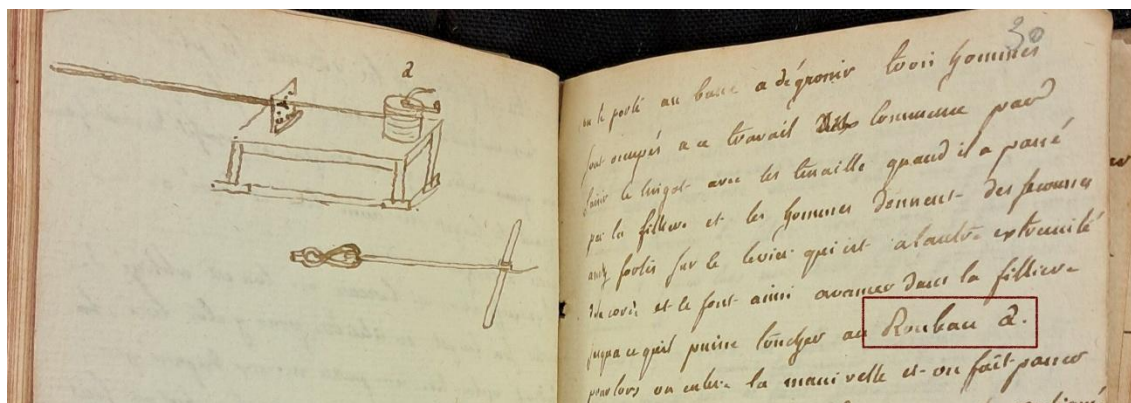 a
30
on le porte au banc a dégrosir trois hommes
sont ocupés a ce travail on commence par
saisir le lingot avec les tenaille quand il a passé
par la filliere et les hommes donnent des secousses
assez fortes sur le levier qui est a lautre extremité
et le font ainsi avancer dans la filliere
jusqua ce quil puisse toucher au Rouleau a.
pour lors on enleve la manivelle et on fait passer